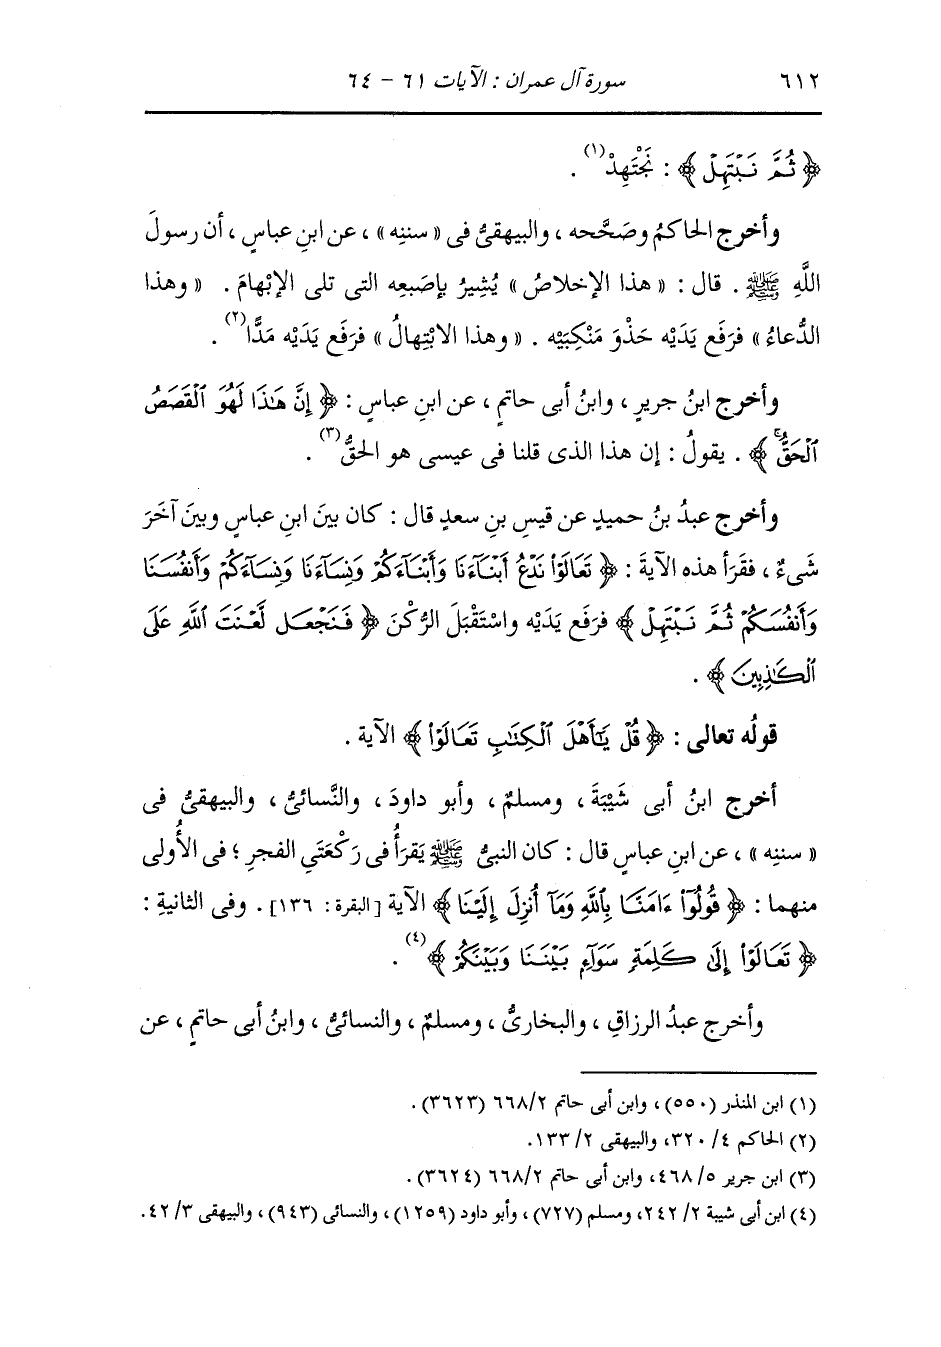 ٦١٢ سورة آل عمران : الآيات ٦١ - ٦٤
﴿ ثُمَّ نَبْتَهِلْ ﴾ : نَجْتَهِدْ(١) .
وأخرج الحاكمُ وصَحَّحه ، والبيهقىُّ فى « سننِه » ، عن ابنِ عباسٍ ، أن رسولَ
اللَّهِ ﷺ . قال : « هذا الإخلاصُ » يُشِيرُ بإصْبعِه التى تلى الإبْهامَ . « وهذا
الدُّعاءُ » فرَفَع يَدَيْه حَذْوَ مَنْكِبَيْه . « وهذا الابْتِهالُ » فرَفَع يَدَيْه مَدًّا(٢) .
وأخرج ابنُ جريرٍ ، وابنُ أبى حاتمٍ ، عن ابنِ عباسٍ : ﴿ إِنَّ هَٰذَا لَهُوَ ٱلْقَصَصُ
ٱلْحَقُّ ﴾ . يقولُ : إن هذا الذى قلنا فى عيسى هو الحقُّ(٣) .
وأخرج عبدُ بنُ حميدٍ عن قيسِ بنِ سعدٍ قال : كان بينَ ابنِ عباسٍ وبينَ آخَرَ
شَىءٌ ، فقَرَأ هذه الآيةَ : ﴿ تَعَالَوْا۟ نَدْعُ أَبْنَآءَنَا وَأَبْنَآءَكُمْ وَنِسَآءَنَا وَنِسَآءَكُمْ وَأَنفُسَنَا
وَأَنفُسَكُمْ ثُمَّ نَبْتَهِلْ ﴾ فرَفَع يَدَيْه واسْتَقْبَلَ الرُّكْنَ ﴿ فَنَجْعَل لَّعْنَتَ ٱللَّهِ عَلَى
ٱلْكَٰذِبِينَ ﴾ .
قولُه تعالى : ﴿ قُلْ يَٰٓأَهْلَ ٱلْكِتَٰبِ تَعَالَوْا۟ ﴾ الآية .
أخرج ابنُ أبى شَيْبَةَ ، ومسلمٌ ، وأبو داودَ ، والنَّسائىُّ ، والبيهقىُّ فى
« سننِه » ، عن ابنِ عباسٍ قال : كان النبىُّ ﷺ يَقرَأُ فى رَكْعَتَىِ الفجرِ ؛ فى الأُولى
منهما : ﴿ قُولُوٓا۟ ءَامَنَّا بِٱللَّهِ وَمَآ أُنزِلَ إِلَيْنَا ﴾ الآية [البقرة : ١٣٦] . وفى الثانيةِ :
﴿ تَعَالَوْا۟ إِلَىٰ كَلِمَةٍ سَوَآءٍ بَيْنَنَا وَبَيْنَكُمْ ﴾(٤) .
وأخرج عبدُ الرزاقِ ، والبخارىُّ ، ومسلمٌ ، والنسائىُّ ، وابنُ أبى حاتمٍ ، عن
(١) ابن المنذر (٥٥٠) ، وابن أبى حاتم ٢/ ٦٦٨ (٣٦٢٣) .
(٢) الحاكم ٤/ ٣٢٠، والبيهقى ٢/ ١٣٣.
(٣) ابن جرير ٥/ ٤٦٨، وابن أبى حاتم ٢/ ٦٦٨ (٣٦٢٤) .
(٤) ابن أبى شيبة ٢/ ٢٤٢، ومسلم (٧٢٧) ، وأبو داود (١٢٥٩) ، والنسائى (٩٤٣) ، والبيهقى ٣/ ٤٢.